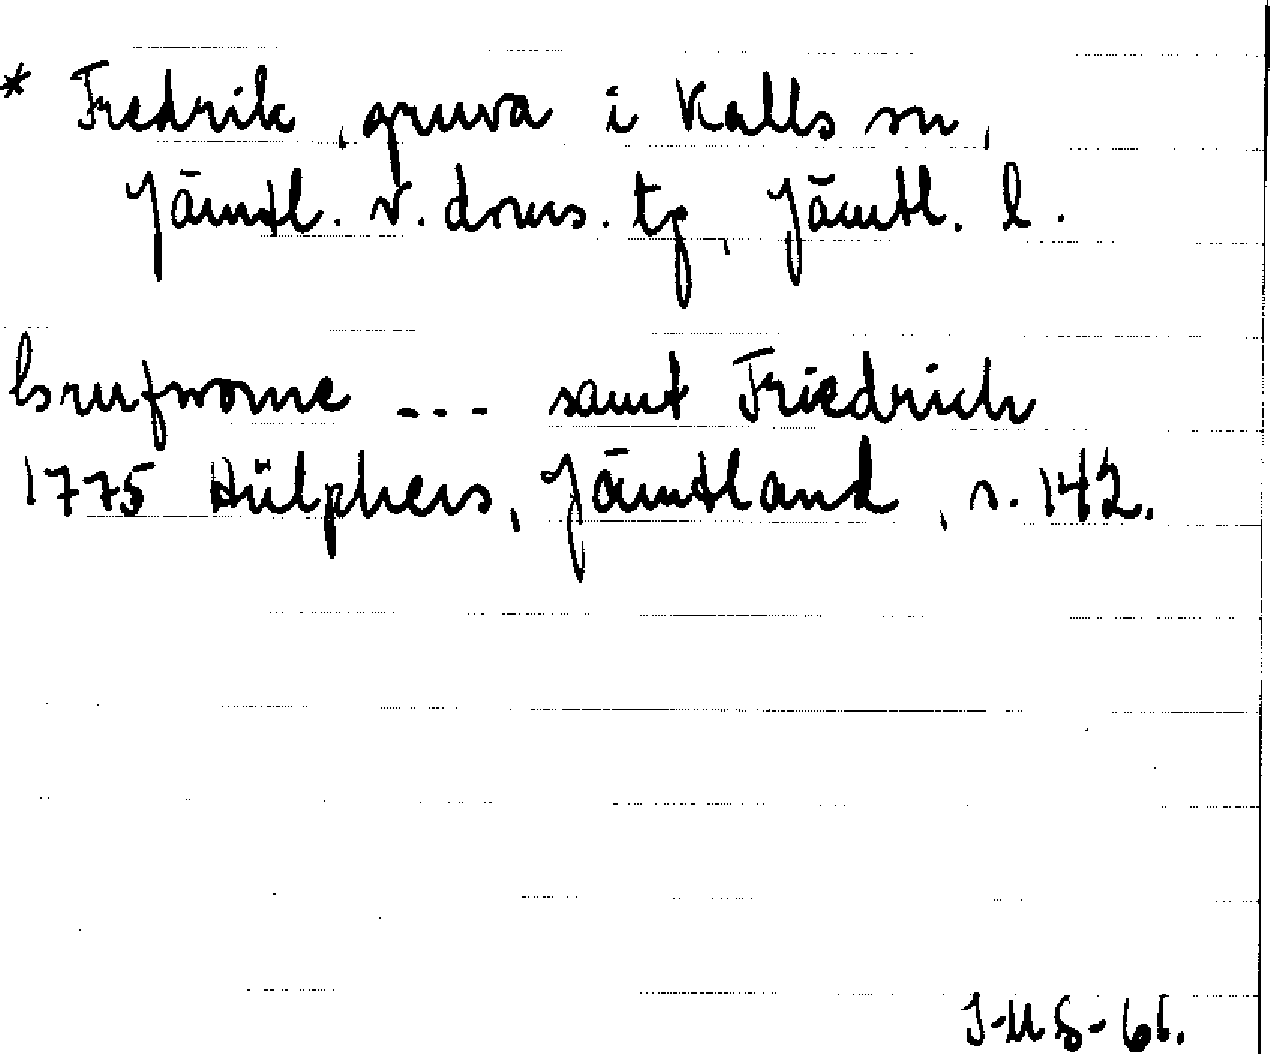 * Fredrik, gruva i Kalls sn,
Jämtl. v. doms. tg, Jämtl. l.
Grufworne --- samt Friedrich
1775 Hülphers, Jämtland, s. 142.